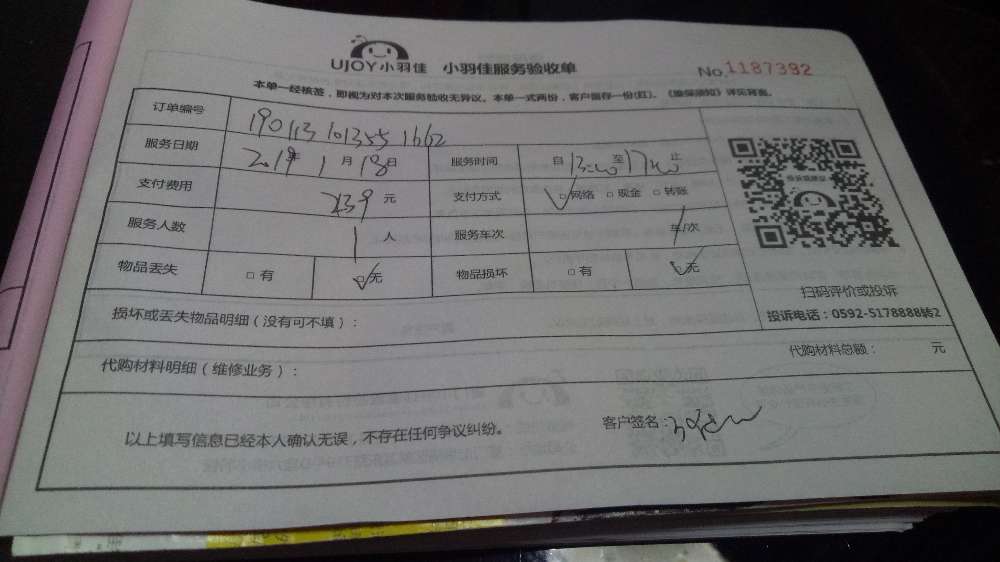 UJOY小羽佳 小羽佳服务验收单 No.1187392
本单一经核签，即视为对本次服务验收无异议。本单一式两份，客户留存一份(红)。《维保须知》详见背面。
订单编号 190113101355 1662
服务日期 2019年 1月 18日 服务时间 自 13:00 至 17:00 止
支付费用 239 元 支付方式 □网络 □现金 □转账
服务人数 1 人 服务车次 车/次
物品丢失 □有 □无 物品损坏 □有 □无
扫码评价或投诉
投诉电话：0592-5178888转2
损坏或丢失物品明细（没有可不填）：
代购材料明细（维修业务）： 代购材料总额： 元
以上填写信息已经本人确认无误，不存在任何争议纠纷。 客户签名：